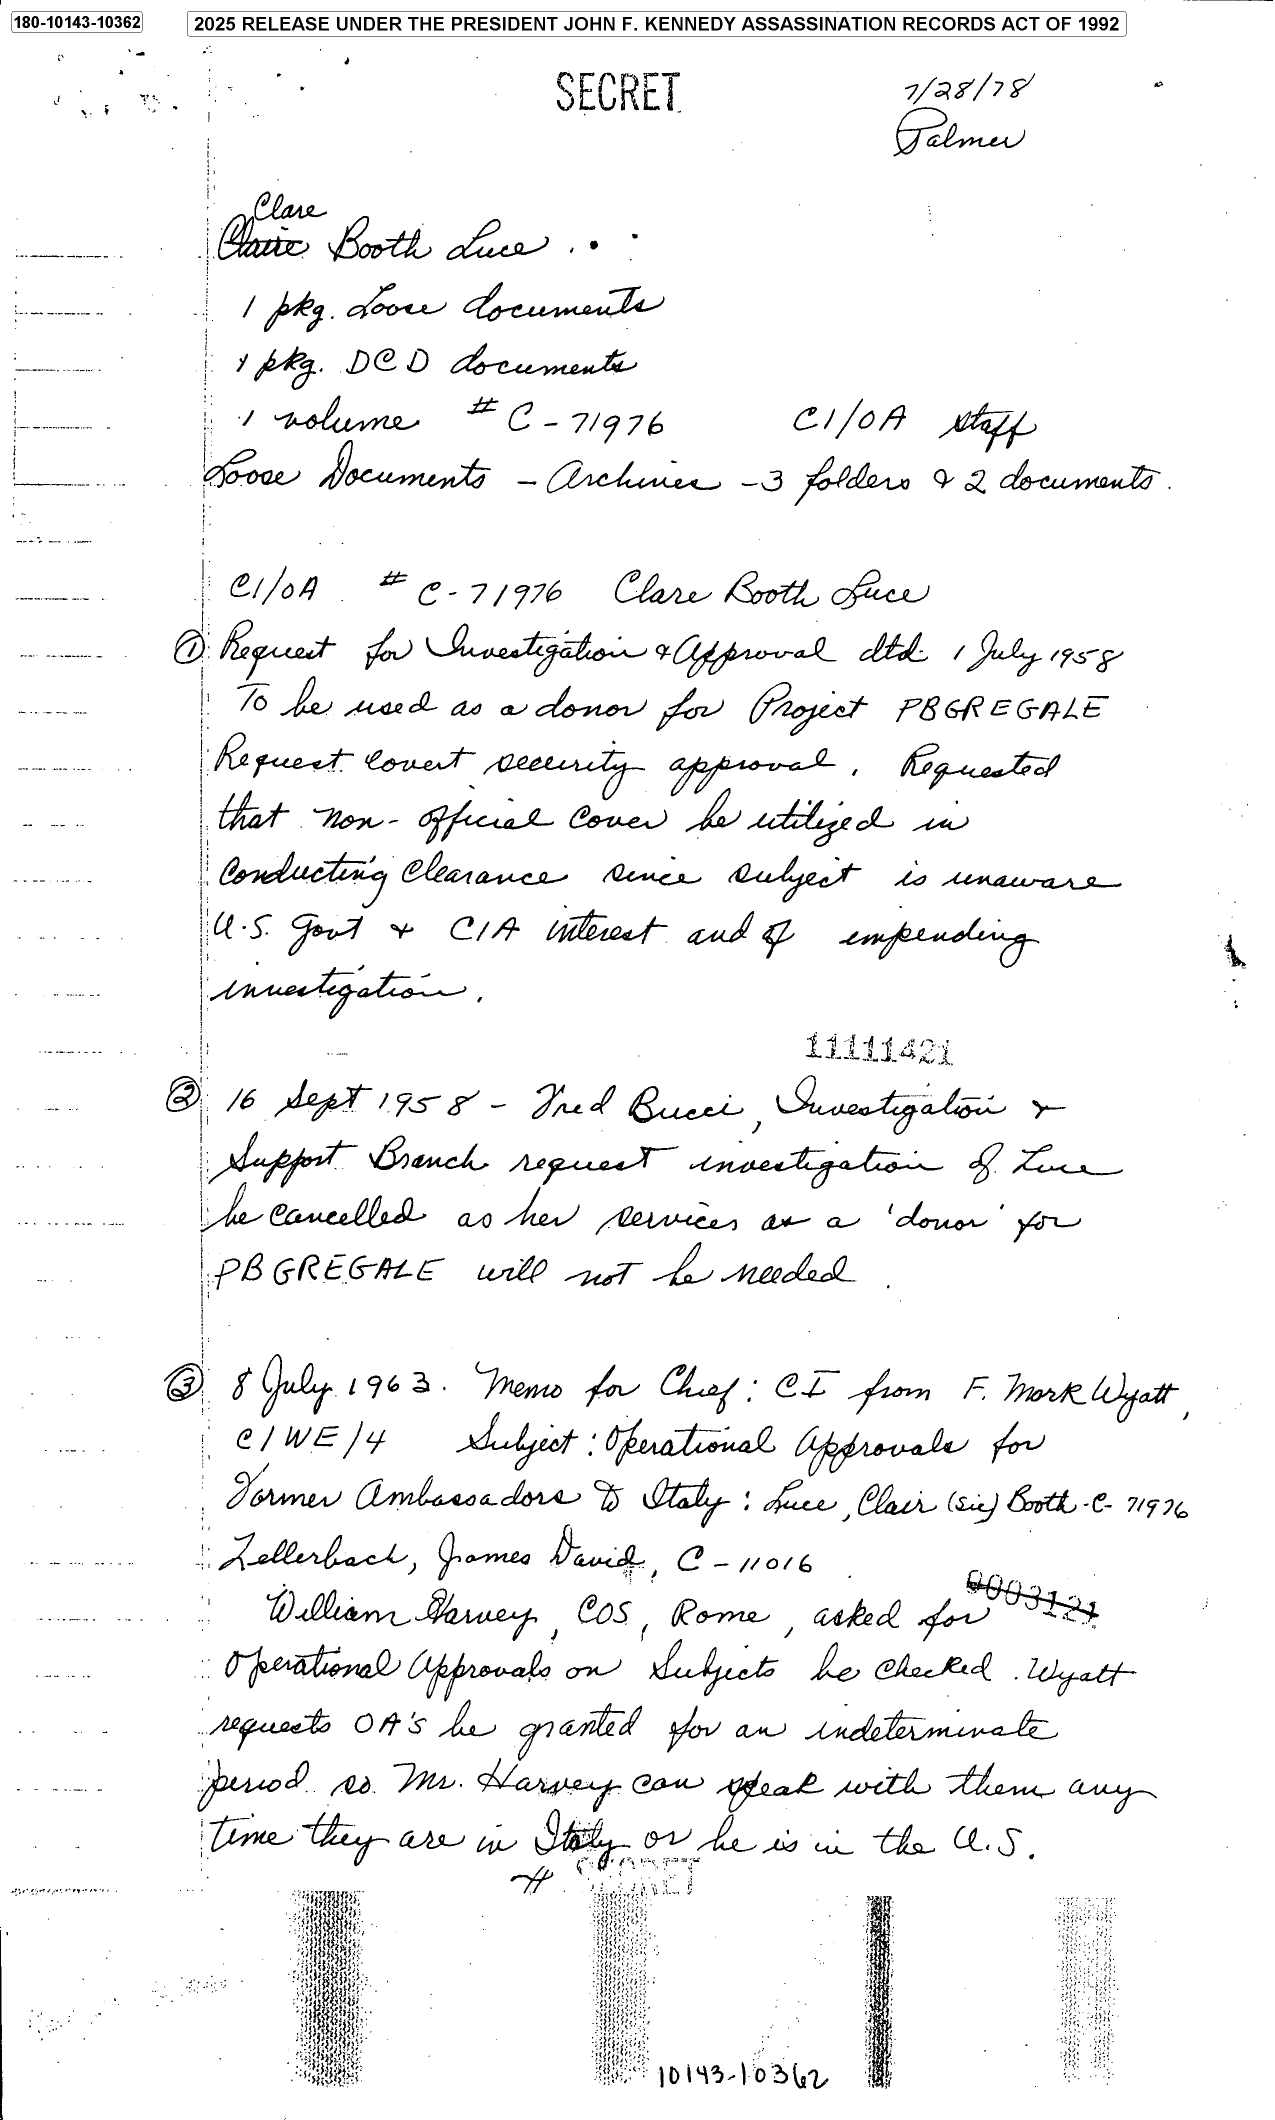 180-10143-10362
2025 RELEASE UNDER THE PRESIDENT JOHN F. KENNEDY ASSASSINATION RECORDS ACT OF 1992
SECRET
7/28/78
Palmer
Clare
Claire Booth Luce
1 pkg. Loose documents
1 pkg. DCD documents
1 volume # C-71976 CI/OA staff
Loose Documents - Archives - 3 folders & 2 documents.
CI/OA # C-71976 Clare Booth Luce
① Request for Investigation & Approval dtd 1 July 1958
To be used as a donor for Project PBGREGALE
Request covert security approval. Requested
that non-official cover be utilized in
conducting clearance since subject is unaware
U.S. Govt & CIA interest and of impending
investigation.
11111421
② 16 Sept 1958 - Fred Bucci, Investigation &
Support Branch request investigation of Luce
be cancelled as her services as a 'donor' for
PBGREGALE will not be needed
③ 8 July 1963. Memo for Chief: CI from F. Mark Wyatt,
C/WE/4 Subject: Operational Approvals for
Former Ambassadors to Italy: Luce, Clair (sic) Booth - C- 71976
Zellerbach, James David, C-11016
0003121
William Harvey, COS, Rome, asked for
Operational Approvals on Subjects be checked. Wyatt
requests OA'S be granted for an indeterminate
period so Mr. Harvey can speak with them any
time they are in Italy or he is in the U.S.
SECRET
10143-10362